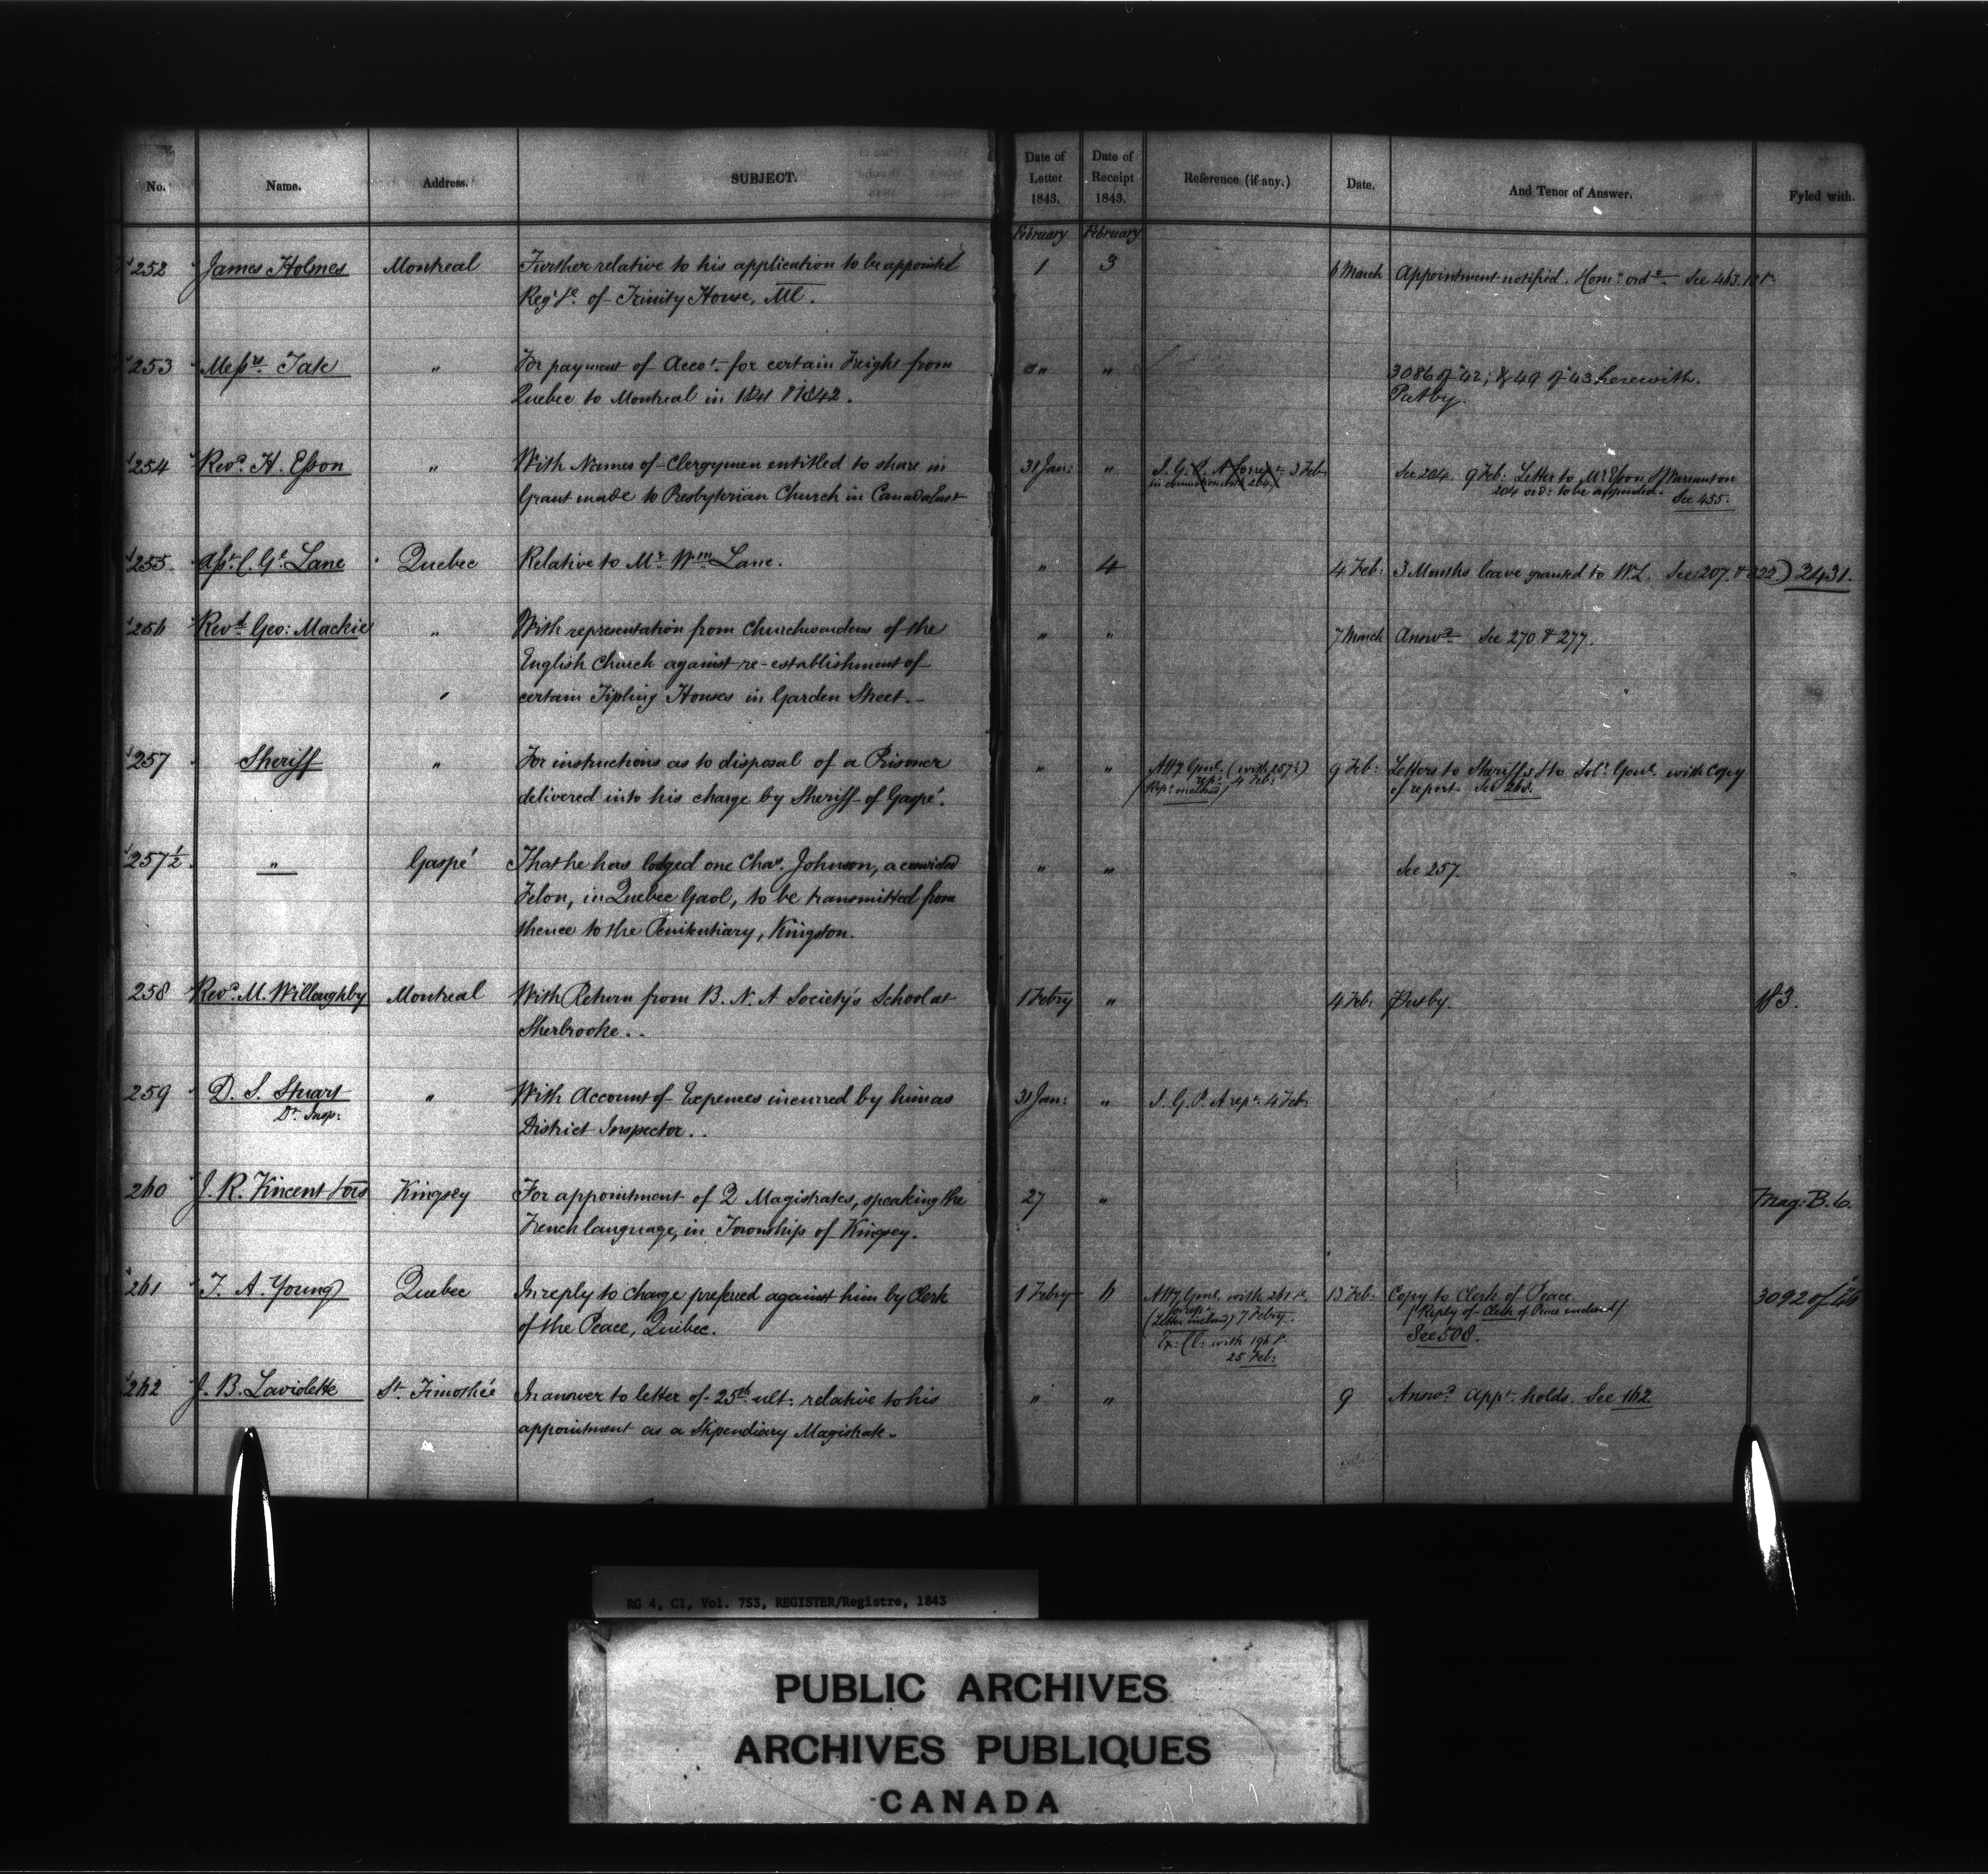 No. Name. Address. SUBJECT. Date of Letter 1843. Date of Receipt 1843. Reference (if any.) Date. And Tenor of Answer. Fyled with.
February February
252 James Holmes Montreal Further relative to his application to be appointed 1 3 6 March Appointment notified. See 463.
of Trinity House, Ml.
253 Messrs. Tate " For payment of Accot. for certain Freight from " " 3086 of '42; & 49 of '43 herewith.
Quebec to Montreal in 1841 & 1842. Put by.
254 Revd. H. Esson " With Names of Clergymen entitled to share in 31 Jan: " 3 Feb. See 204. 9 Feb: Letter to Mr. Esson
Grant made to Presbyterian Church in Canada East 204 to be appended. See 455.
255 Asst. C. Gl. Lane Quebec Relative to Mr. Wm. Lane. " 4 4 Feb: 3 Months leave granted to W.L. See 207. & 322.) 2431.
256 Revd. Geo: Mackie " With representation from Churchwardens of the " " 7 March Answd. See 270 & 277.
English Church against re-establishment of
certain Tipling Houses in Garden Street.
257 Sheriff " For instructions as to disposal of a Prisoner " " Atty. Genl. (with 257½) 9 Feb: Letters to Sheriffs & to Solr. Genl. with copy
delivered into his charge by Sheriff of Gaspé. rept. 4 Feb: of report. See 268.
257½. " Gaspé That he has lodged one Chas. Johnson, a convicted " " See 257.
Felon, in Quebec Gaol, to be transmitted from
thence to the Penitentiary, Kingston.
258 Revd. M. Willoughby Montreal With Return from B. N. A Society's School at 1 Febry " 4 Feb: Put by. 183.
Sherbrooke..
259 D. S. Stuart " With Account of Expenses incurred by him as 31 Jan: " I. G. P. A rept. 4 Feb:
Dt. Insp: District Inspector..
260 J. R. Vincent & ors Kingsey For appointment of 2 Magistrates, speaking the 27 " Mag: B. 6.
French language, in Township of Kingsey.
261 T. A. Young Quebec In reply to charge preferred against him by Clerk 1 Febry 6 Atty Genl. with 13 Feb: Copy to Clerk of Peace. 3092 of 46
of the Peace, Quebec. 7 Febry. (Reply of Clerk of Peace enclosed)
Ex: Cl: with See 508.
25 Feb:
262 J. B. Laviolette St. Timothée In answer to letter of 25th ult: relative to his " " 9 Answd. Appt. holds. See 162
appointment as a Stipendiary Magistrate.
RG 4, C1, Vol. 753, REGISTER/Registre, 1843
PUBLIC ARCHIVES
ARCHIVES PUBLIQUES
CANADA